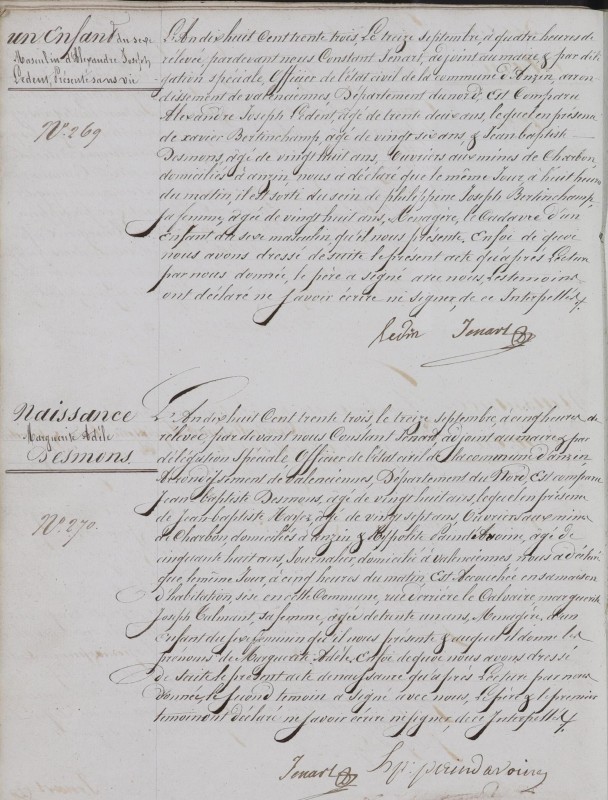 un Enfant du sexe
Masculin d'Alexandre Joseph
Ledent, Présenté sans vie
N.º 269
L'An dix huit Cent trente trois, Le treize septembre, à quatre heures de
relevée, pardevant nous Constant Tenart, adjoint au maire & par délé-
gation spéciale, Officier de l'état civil de la Commune d'Anzin, arron-
dissement de valenciennes, Département du nord, Est Comparu
Alexandre Joseph Ledent, âgé de trente deux ans, lequel en présence
de xavier Bertinchamp, âgé de vingt six ans, & Jean baptiste
Desmons, âgé de vingt huit ans, Ouvriers aux mines de Charbon,
domiciliés à anzin, nous a déclaré que le même Jour, à huit heures
du matin, il est sorti du sein de philippine Joseph Bertinchamp,
sa femme, âgée de vingt huit ans, Ménagère, le Cadavre d'un
Enfant du sexe masculin, qu'il nous présente. Enfoi de quoi
nous avons dressé desuite le présent acte qu'après Lecture
par nous donnée, le père a signé avec nous, Les temoins
ont déclaré ne savoir écrire ni signer, de ce Interpellés.
Tenart
Naissance
Marguerite Adèle
Desmons.
N.º 270.
L'An dix huit Cent trente trois, le treize septembre, à cinq heures de
relevée, par devant nous Constant Tenart, adjoint au maire & par
délégation spéciale, Officier de l'état civil de la commune d'anzin
Arrondissement de valenciennes, Département du Nord, Est comparu
Jean baptiste Desmons, âgé de vingt huit ans, lequel en présence
de Jean baptiste âgé de vingt sept ans, Ouvriers aux mines
de Charbon, domiciliés à anzin & hyppolite âgé de
cinquante huit ans, Journalier, domicilié à valenciennes nous a déclaré
que, le même Jour, à cinq heures du matin Est Accouchée en sa maison
d'habitation, sise en cette Commune, rue derrière le Calvaire, marguerite
Joseph Talmant, sa femme, âgée de trente un ans, Menagère, d'un
Enfant du sexe feminin qu'il nous présente & auquel il donne les
prénoms de Marguerite Adèle. Enfoi de quoi nous avons dressé
de suite le présent acte de naissance qu'après Lecture par nous
donnée, le second temoin a signé avec nous, Le père & le premier
temoin ont déclaré ne savoir écrire ni signer, de ce Interpellés.
Tenart